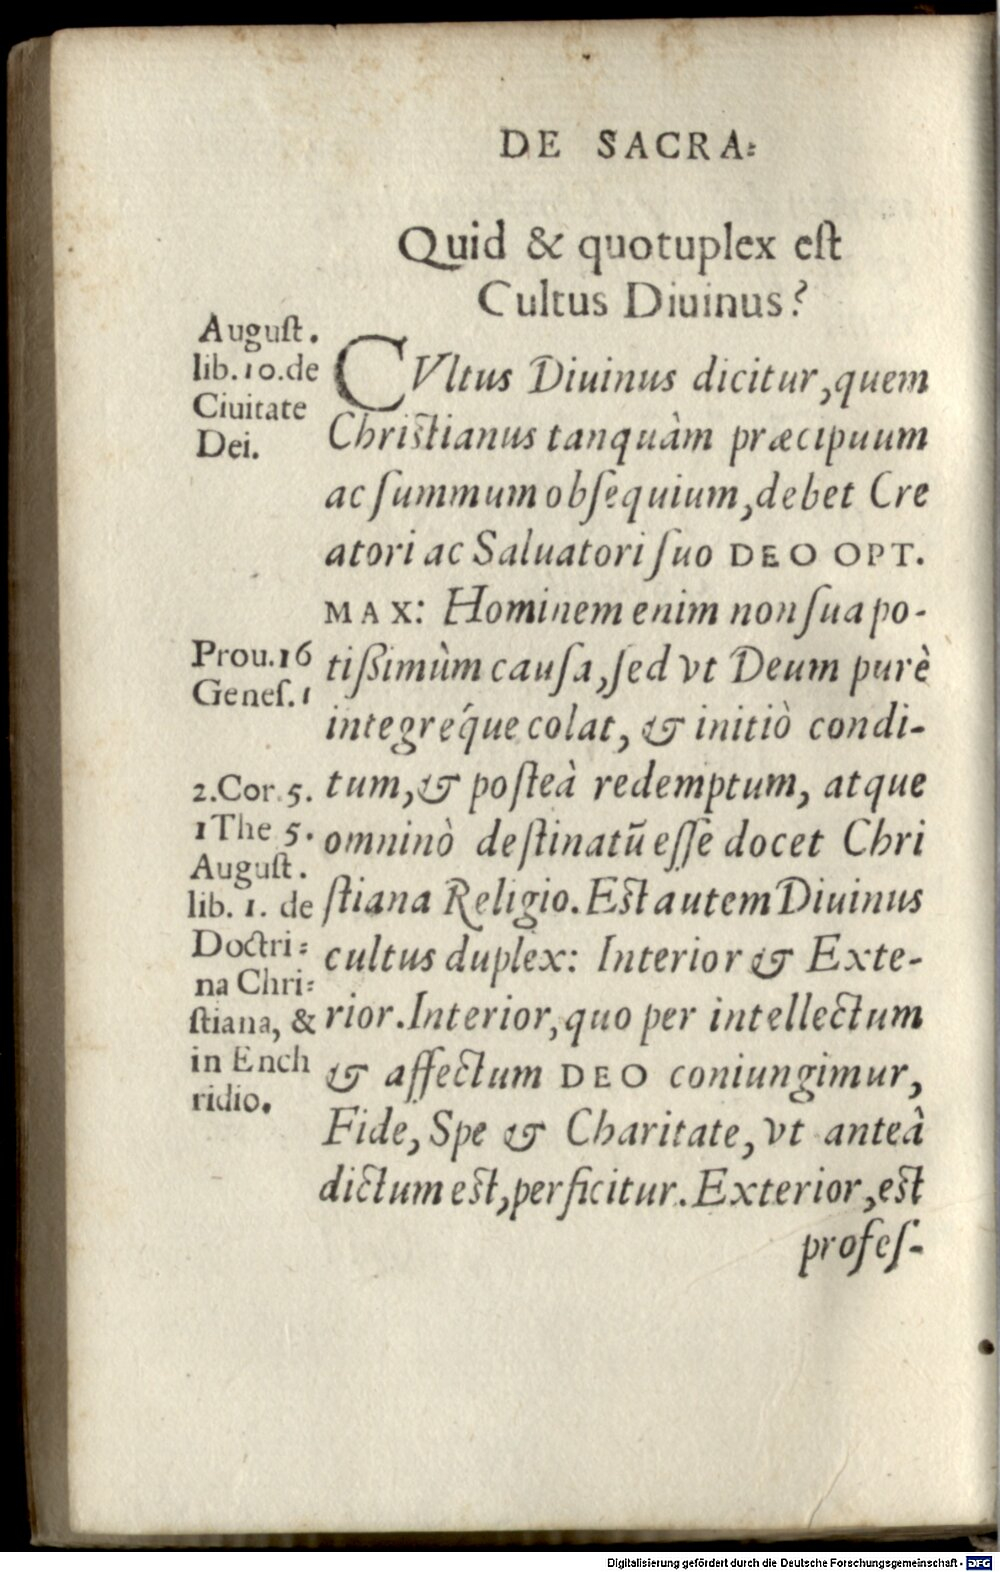 DE SACRA=
Quid & quotuplex eſt
Cultus Diuinus?
Auguſt.
lib.10.de
Ciuitate
Dei.
CVltus Diuinus dicitur, quem
Chriſtianus tanquàm præcipuum
ac ſummum obſequium, debet Cre
atori ac Saluatori ſuo DEO OPT.
MAX: Hominem enim non ſua po-
Prou.16
Geneſ.1
tiſſimùm cauſa, ſed vt Deum purè
integréque colat, & initiò condi-
2.Cor.5.
1The 5.
Auguſt.
lib. 1. de
Doctri=
na Chri=
ſtiana, &
in Ench
ridio.
tum, & poſteà redemptum, atque
omninò deſtinatū eſſe docet Chri
ſtiana Religio. Eſt autem Diuinus
cultus duplex: Interior & Exte-
rior. Interior, quo per intellectum
& affectum DEO coniungimur,
Fide, Spe & Charitate, vt anteà
dictum eſt, perficitur. Exterior, eſt
profeſ-
Digitalisierung gefördert durch die Deutsche Forschungsgemeinschaft - DFG